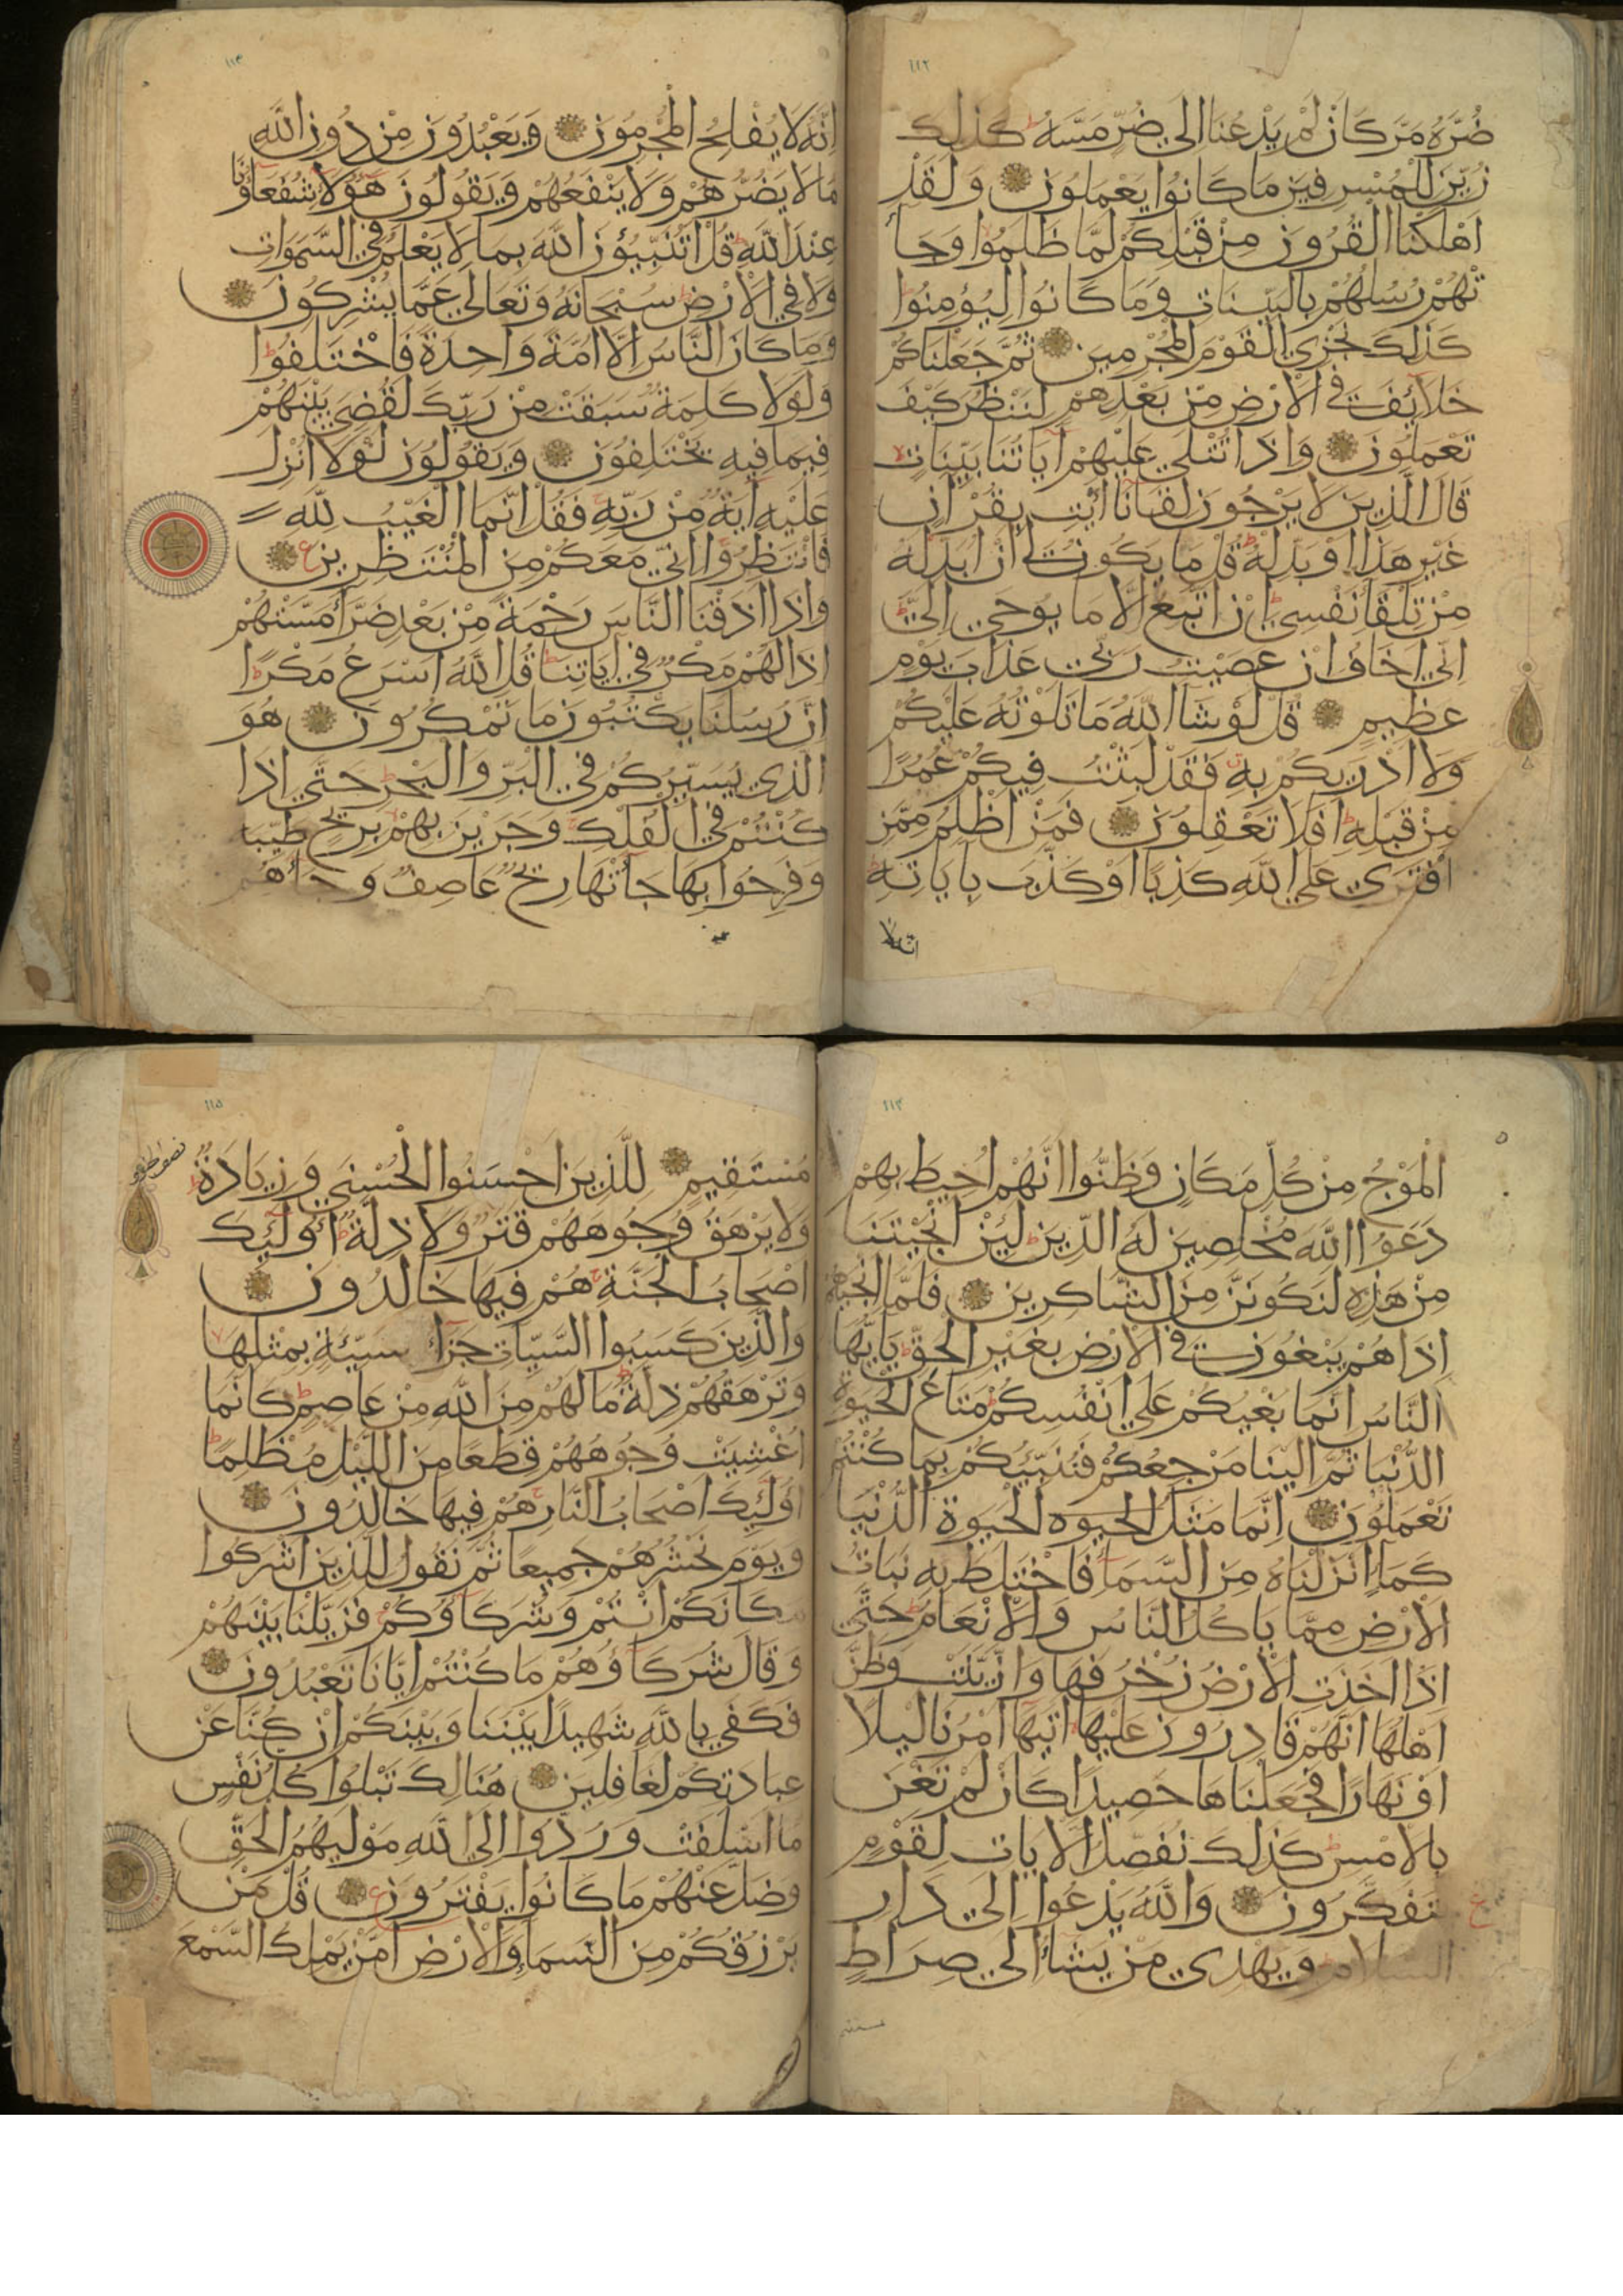 ١١٢
ضره مر كان لم يدعنا الي ضر مسه كذلك
زين للمسرفين ما كانوا يعملون ولقد
اهلكنا القرون من قبلكم لما ظلموا وجا
تهم رسلهم بالبينات وما كانوا ليؤمنوا
كذلك نجزي القوم المجرمين ثم جعلناكم
خلائف في الارض من بعدهم لننظر كيف
تعملون واذا تتلي عليهم اياتنا بينات
قال الذين لا يرجون لقانا ائت بقران
غير هذا او بدله قل ما يكون لي ان ابدله
من تلقا نفسي ان اتبع الا ما يوحي الي
اني اخاف ان عصيت ربي عذاب يوم
عظيم قل لو شا الله ما تلوته عليكم
ولا ادريكم به فقد لبثت فيكم عمرا
من قبله افلا تعقلون فمن اظلم ممن
افتري علي الله كذبا او كذب باياته
انه لا
١١٣
انه لا يفلح المجرمون ويعبدون من دون الله
ما لا يضرهم ولا ينفعهم ويقولون هؤلا شفعاؤنا
عند الله قل اتنبئون الله بما لا يعلم في السموات
ولا في الارض سبحانه وتعالي عما يشركون
وما كان الناس الا امة واحدة فاختلفوا
ولولا كلمة سبقت من ربك لقضي بينهم
فيما فيه يختلفون ويقولون لولا انزل
عليه اية من ربه فقل انما الغيب لله
فانتظروا اني معكم من المنتظرين ع
واذا اذقنا الناس رحمة من بعد ضرا مستهم
اذا لهم مكر في اياتنا قل الله اسرع مكرا
ان رسلنا يكتبون ما تمكرون هو
الذي يسيركم في البر والبحر حتي اذا
كنتم في الفلك وجرين بهم بريح طيبة
وفرحوا بها جاتها ريح عاصف وجاهم
١١٤
الموج من كل مكان وظنوا انهم احيط بهم
دعوا الله مخلصين له الدين لئن انجيتنا
من هذه لنكونن من الشاكرين فلما انجيهم
اذا هم يبغون في الارض بغير الحق يايها
الناس انما بغيكم علي انفسكم متاع الحيوة
الدنيا ثم الينا مرجعكم فننبئكم بما كنتم
تعملون انما مثل الحيوه الحيوة الدنيا
كما انزلناه من السما فاختلط به نبات
الارض مما ياكل الناس والانعام حتي
اذا اخذت الارض زخرفها وازينت وظن
اهلها انهم قادرون عليها اتيها امرنا ليلا
او نهارا فجعلناها حصيدا كان لم تغن
بالامس كذلك نفصل الايات لقوم
يتفكرون والله يدعوا الي دار
السلام ويهدي من يشا الي صراط
مستقيم
١١٥
مستقيم للذين احسنوا الحسني وزيادة
ولا يرهق وجوههم قتر ولا ذلة اولئك
اصحاب الجنة هم فيها خالدون
والذين كسبوا السيات جزا سيئة بمثلها
وترهقهم ذلة ما لهم من الله من عاصم كانما
اغشيت وجوههم قطعا من الليل مظلما
اولئك اصحاب النار هم فيها خالدون
ويوم نحشرهم جميعا ثم نقول للذين اشركوا
مكانكم انتم وشركاؤكم فزيلنا بينهم
وقال شركاؤهم ما كنتم ايانا تعبدون
فكفي بالله شهيدا بيننا وبينكم ان كنا عن
عبادتكم لغافلين هنالك تبلوا كل نفس
ما اسلفت وردوا الي الله موليهم الحق
وضل عنهم ما كانوا يفترون ع قل من
يرزقكم من السما والارض امن يملك السمع